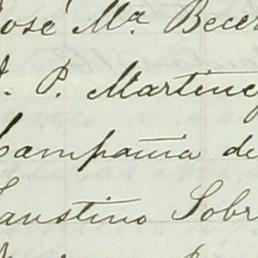 José Mª Becer
J. P. Martinez
Compañia de
Faustino Sobr